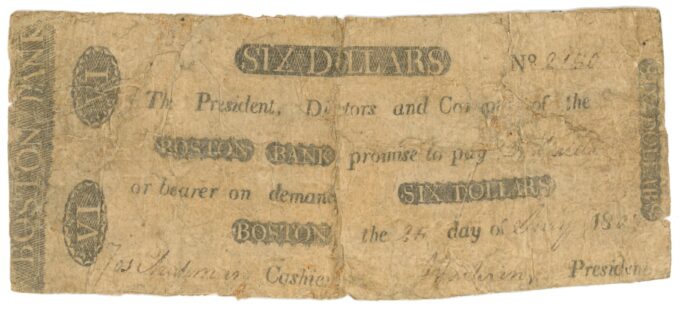 BOSTON BANK
VI
SIX DOLLARS
No 2160
The President, Directors and Comp of the
BOSTON BANK promise to pay
or bearer on demand SIX DOLLARS
BOSTON the day of 180
Cashier President
VI
SIX DOLLARS